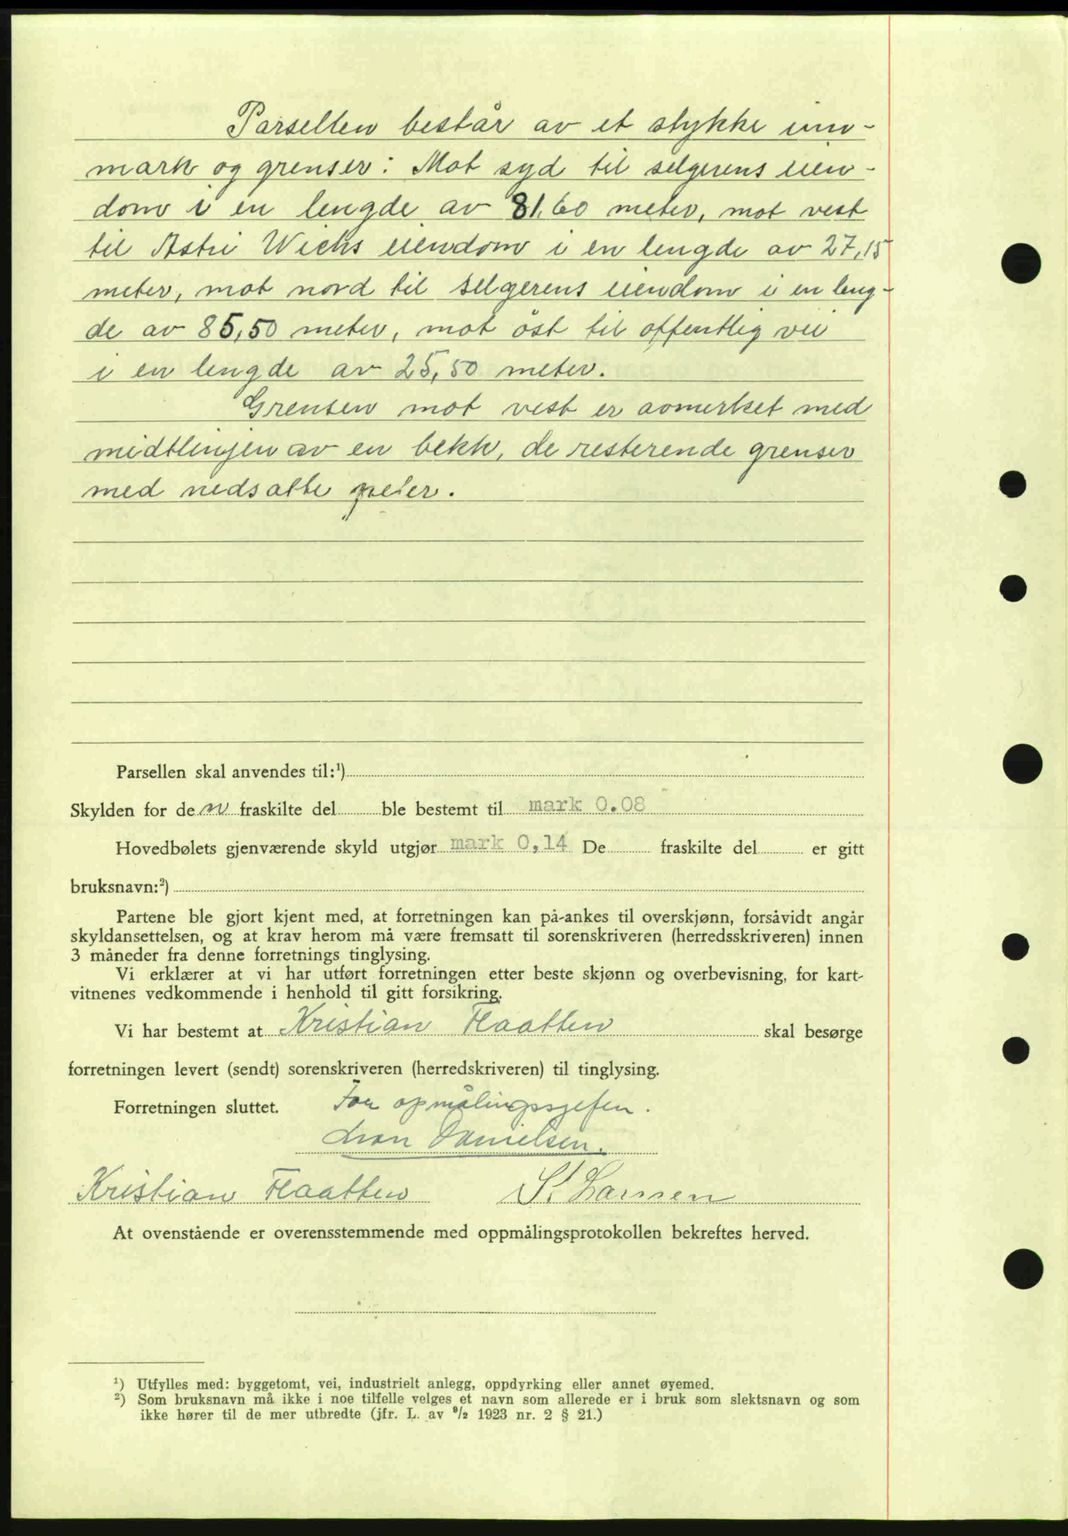 Parsellen består av et stykke inn-
mark og grenser: Mot syd til selgerens eien-
dom i en lengde av 81,60 meter, mot vest
til Astri Wichs eiendom i en lengde av 27,15
meter, mot nord til selgerens eiendom i en leng-
de av 85,50 meter, mot öst til offentlig vei
i en lengde av 25,50 meter.
Grensen mot vest er avmerket med
midtlinjen av en bekk, de resterende grenser
med nedsatte peler.
Parsellen skal anvendes til:¹)
Skylden for den fraskilte del ble bestemt til mark 0.08
Hovedbølets gjenværende skyld utgjør mark 0,14 De fraskilte del er gitt
bruksnavn:²)
Partene ble gjort kjent med, at forretningen kan på-ankes til overskjønn, forsåvidt angår
skyldansettelsen, og at krav herom må være fremsatt til sorenskriveren (herredsskriveren) innen
3 måneder fra denne forretnings tinglysing.
Vi erklærer at vi har utført forretningen etter beste skjønn og overbevisning, for kart-
vitnenes vedkommende i henhold til gitt forsikring.
Vi har bestemt at Kristian Flaatten skal besørge
forretningen levert (sendt) sorenskriveren (herredskriveren) til tinglysing.
Forretningen sluttet. For opmålingssjefen.
Danielsen.
Kristian Flaatten S. Larsen
At ovenstående er overensstemmende med oppmålingsprotokollen bekreftes herved.
¹) Utfylles med: byggetomt, vei, industrielt anlegg, oppdyrking eller annet øyemed.
²) Som bruksnavn må ikke i noe tilfelle velges et navn som allerede er i bruk som slektsnavn og som
ikke hører til de mer utbredte (jfr. L. av ⁹/₂ 1923 nr. 2 § 21.)